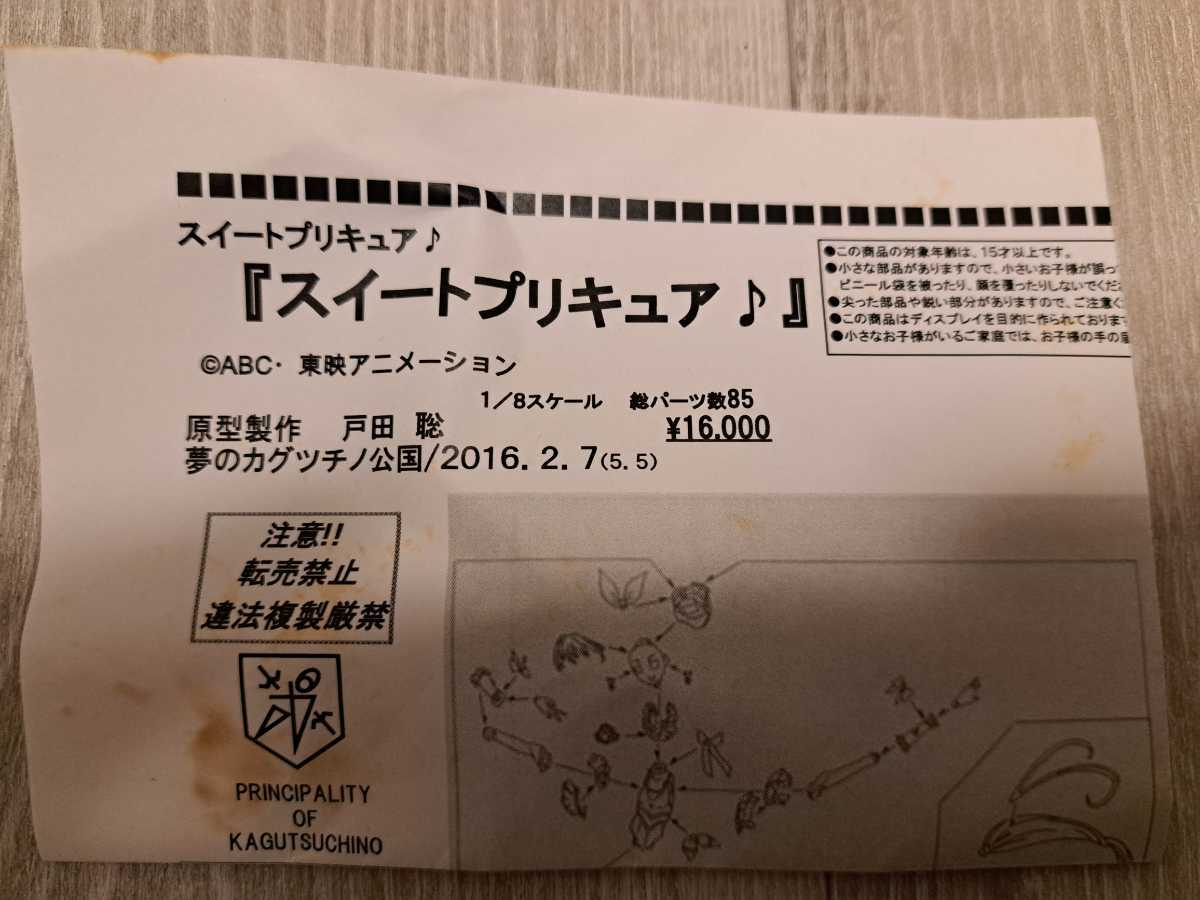 スイートプリキュア♪
『スイートプリキュア♪』
●この商品の対象年齢は、15才以上です。
●小さな部品がありますので、小さいお子様が誤っ
ビニール袋を被ったり、顔を覆ったりしないでくだ
●尖った部品や鋭い部分がありますので、ご注意く
●この商品はディスプレイを目的に作られておりま
●小さなお子様がいるご家庭では、お子様の手の
©ABC・東映アニメーション
1/8スケール 総パーツ数85
原型製作 戸田 聡 ¥16.000
夢のカグツチノ公国/2016.2.7(5.5)
注意!!
転売禁止
違法複製厳禁
PRINCIPALITY
OF
KAGUTSUCHINO